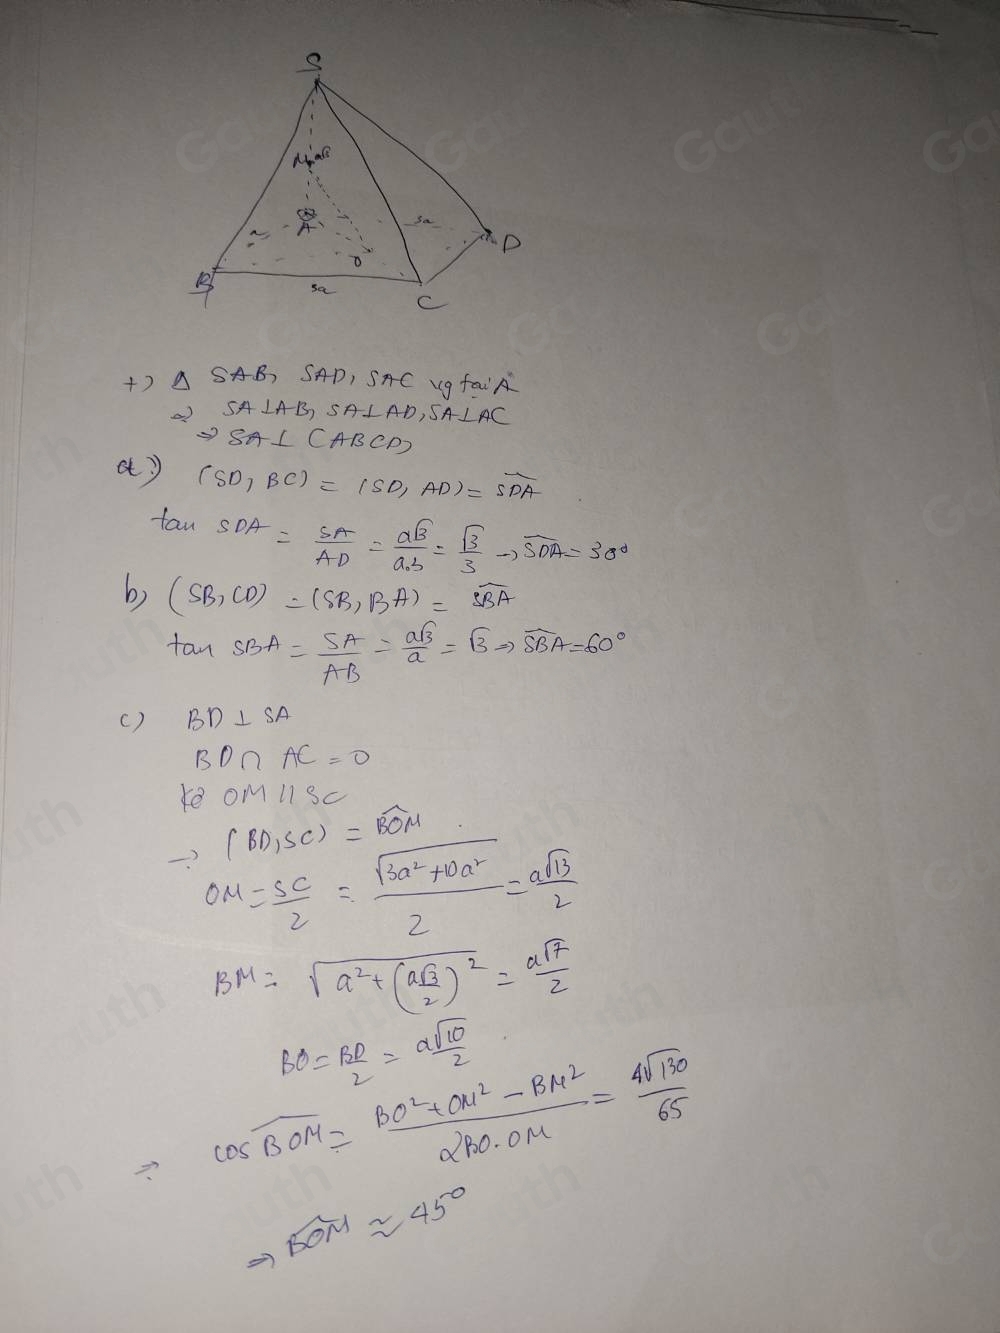 S
M a√3
A
a
3a
D
O
B
3a
C
+) Δ SAB, SAD, SAC vg tại A
=> SA⊥AB, SA⊥AD, SA⊥AC
=> SA⊥ (ABCD)
a) (SD, BC) = (SD, AD) = SDA
tan SDA = SA/AD = a√3/a.3 = √3/3 → SDA = 30°
b) (SB, CD) = (SB, BA) = SBA
tan SBA = SA/AB = a√3/a = √3 → SBA = 60°
c) BD ⊥ SA
BD ∩ AC = O
kẻ OM // SC
→ (BD, SC) = BOM
OM = SC/2 = √(3a²+10a²)/2 = a√13/2
BM = √(a² + (a√3/2)²) = a√7/2
BO = BD/2 = a√10/2
=> cos BOM = (BO² + OM² − BM²)/(2BO.OM) = 4√130/65
=> BOM ≈ 45°
Gauth